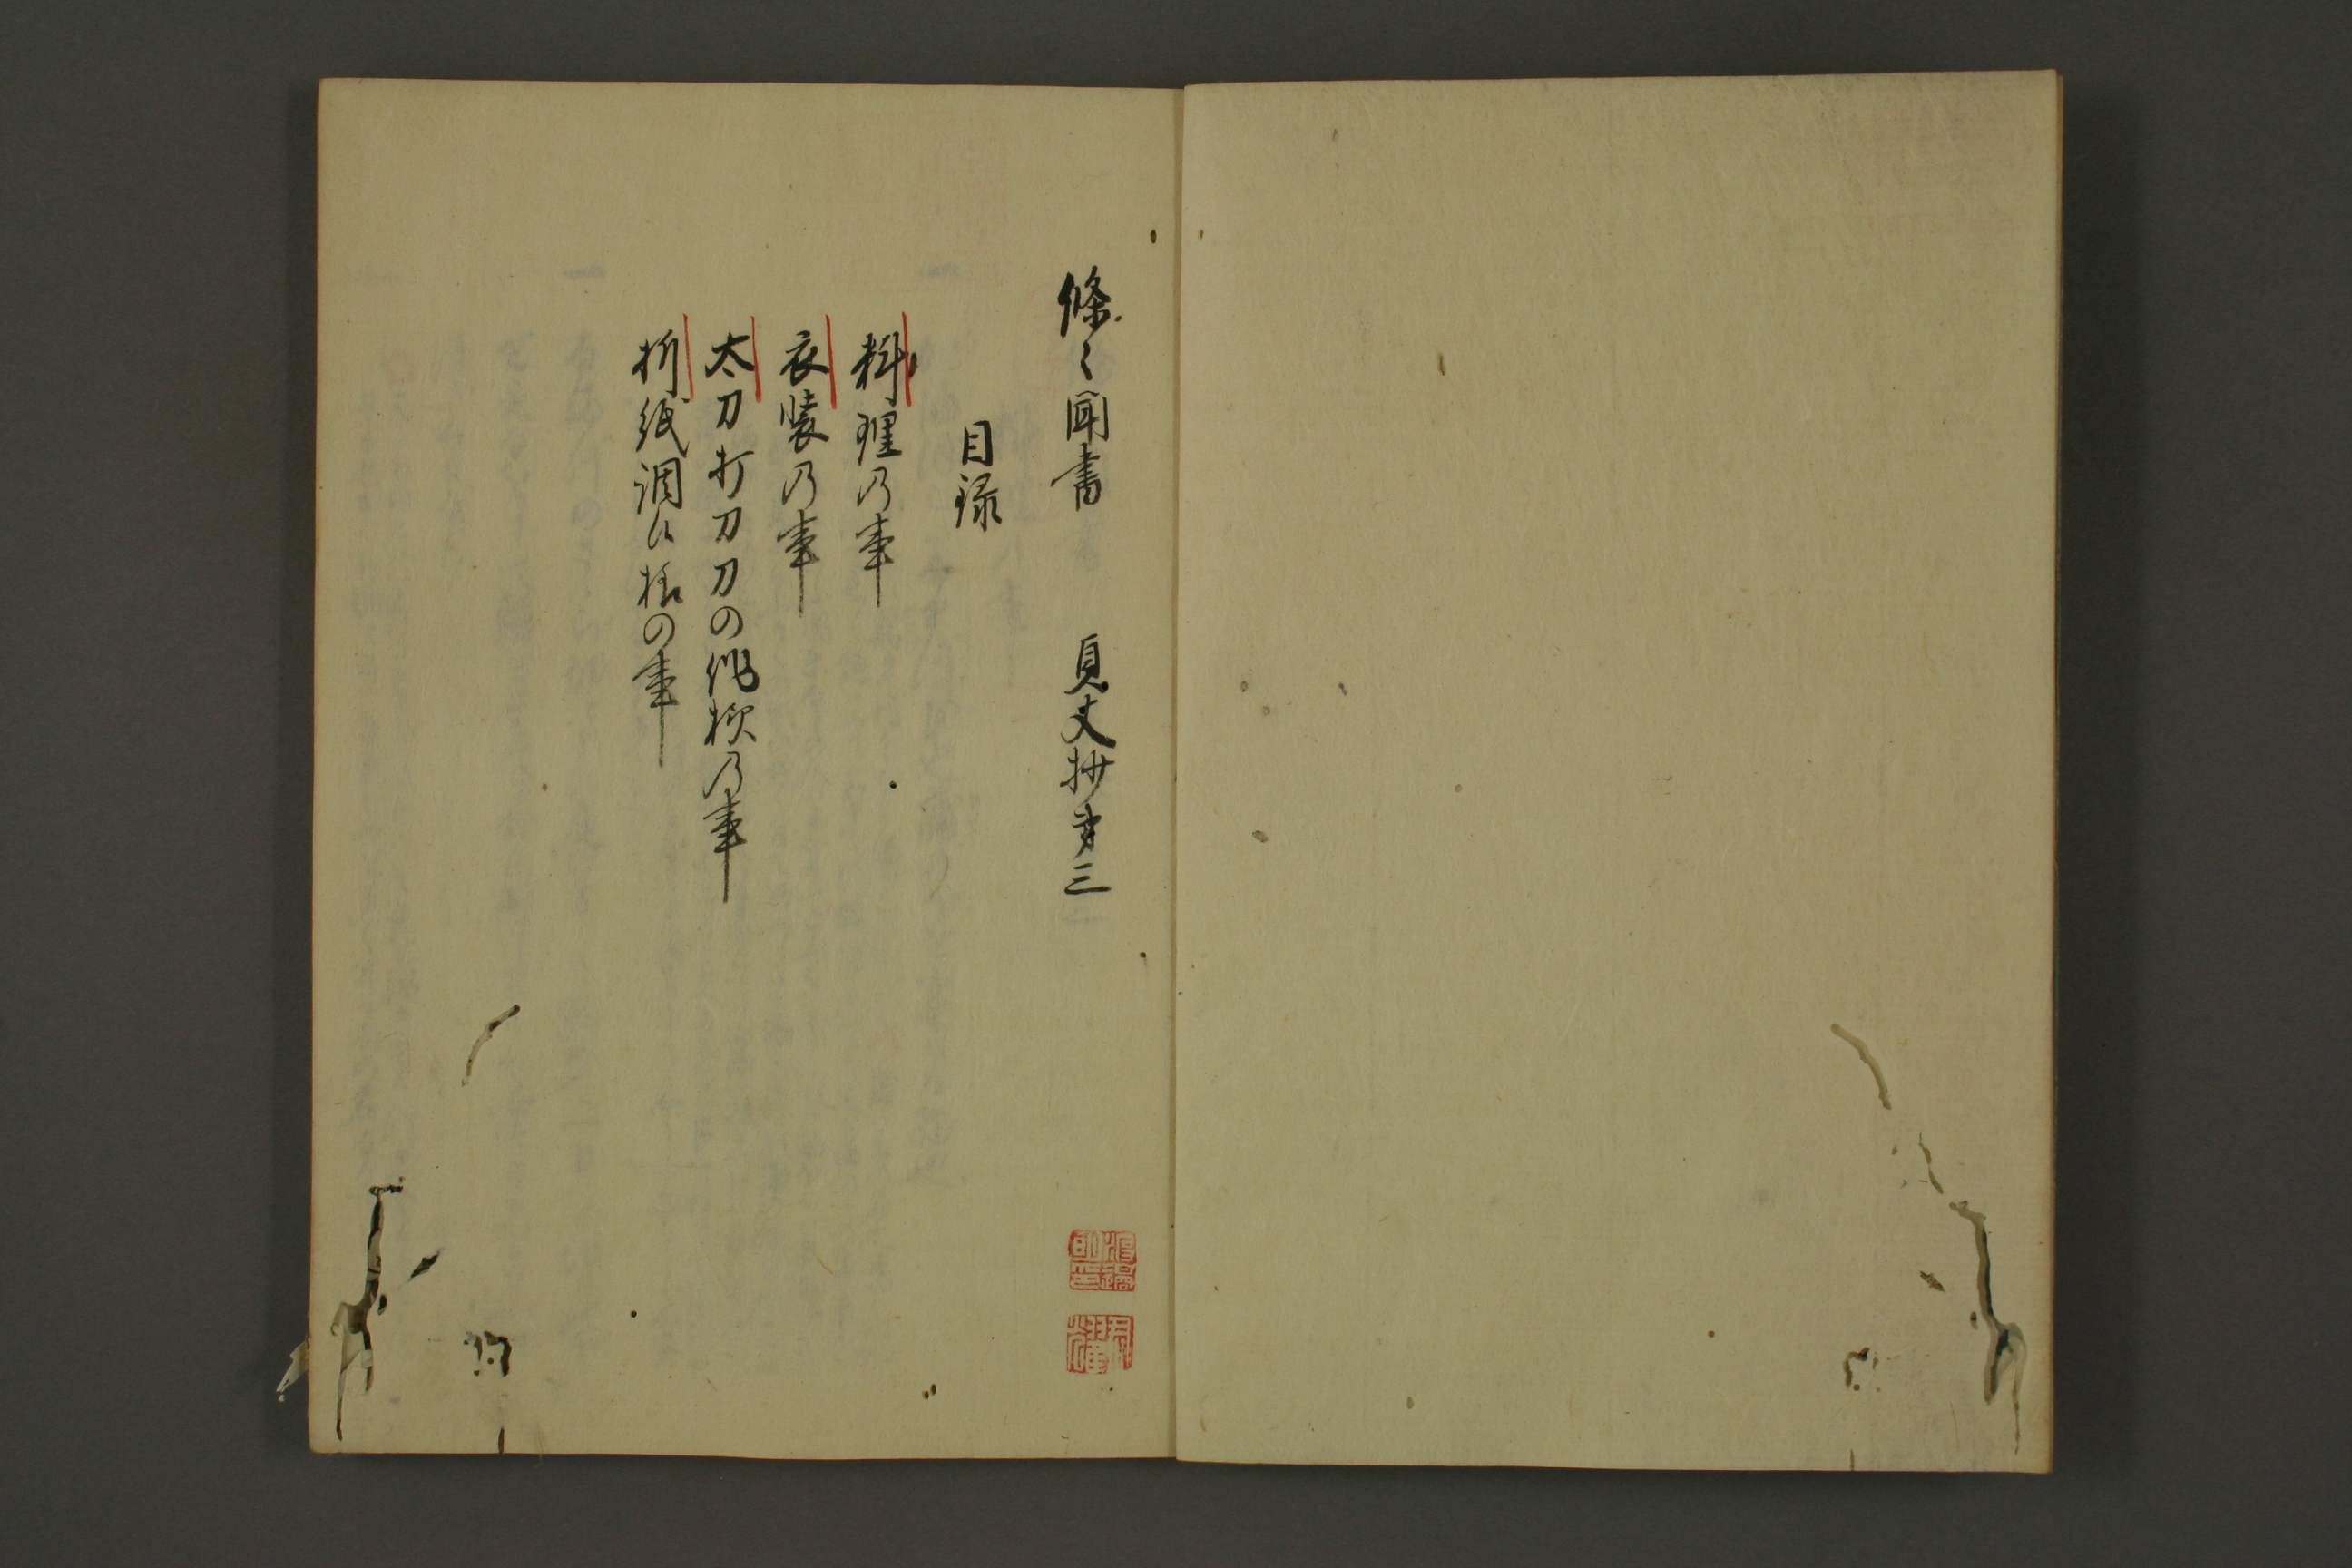 條々聞書　貞丈抄第三
目録
料理乃事
衣装乃事
太刀打刀刀の作様乃事
折紙調候様の事